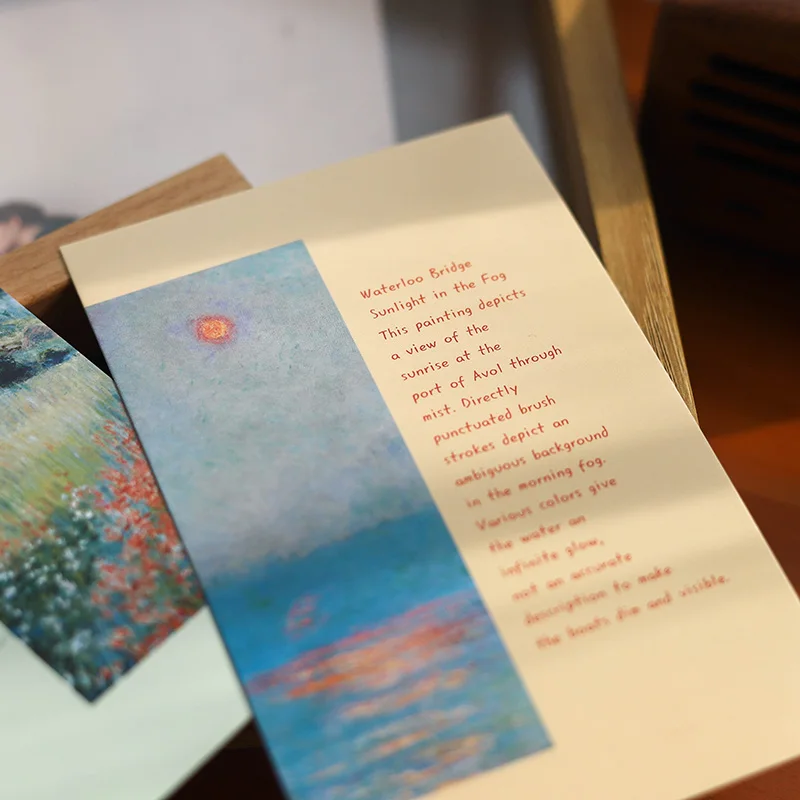 Waterloo Bridge
Sunlight in the Fog
This painting depicts
a view of the
sunrise at the
port of Avol through
mist. Directly
punctuated brush
strokes depict an
ambiguous background
in the morning fog.
Various colors give
the water an
infinite glow,
not an accurate
description to make
the boats dim and visible.